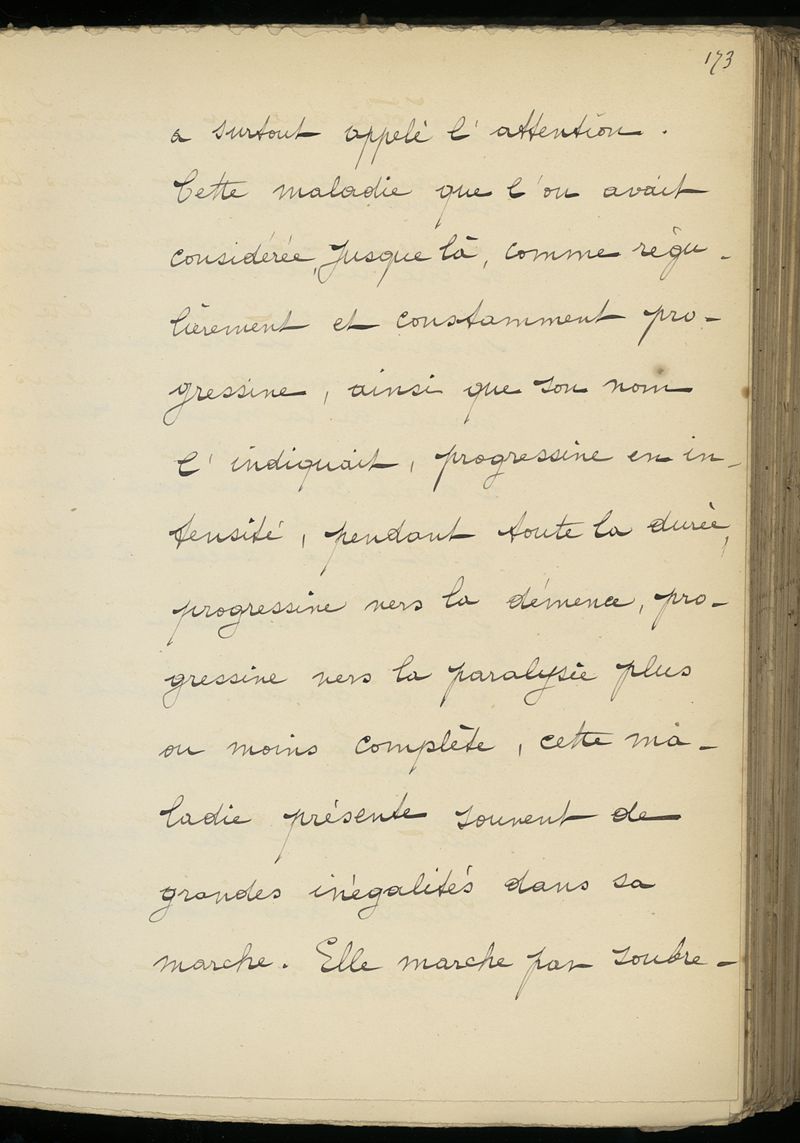 173
a surtout appelé l'attention.
Cette maladie que l'on avait
considérée, jusque là, comme régu-
lièrement et constamment pro-
gressive, ainsi que son nom
l'indiquait, progressive en in-
tensité, pendant toute la durée,
progressive vers la démence, pro-
gressive vers la paralysie plus
ou moins complète, cette ma-
ladie présente souvent de
grandes inégalités dans sa
marche. Elle marche par soubre-